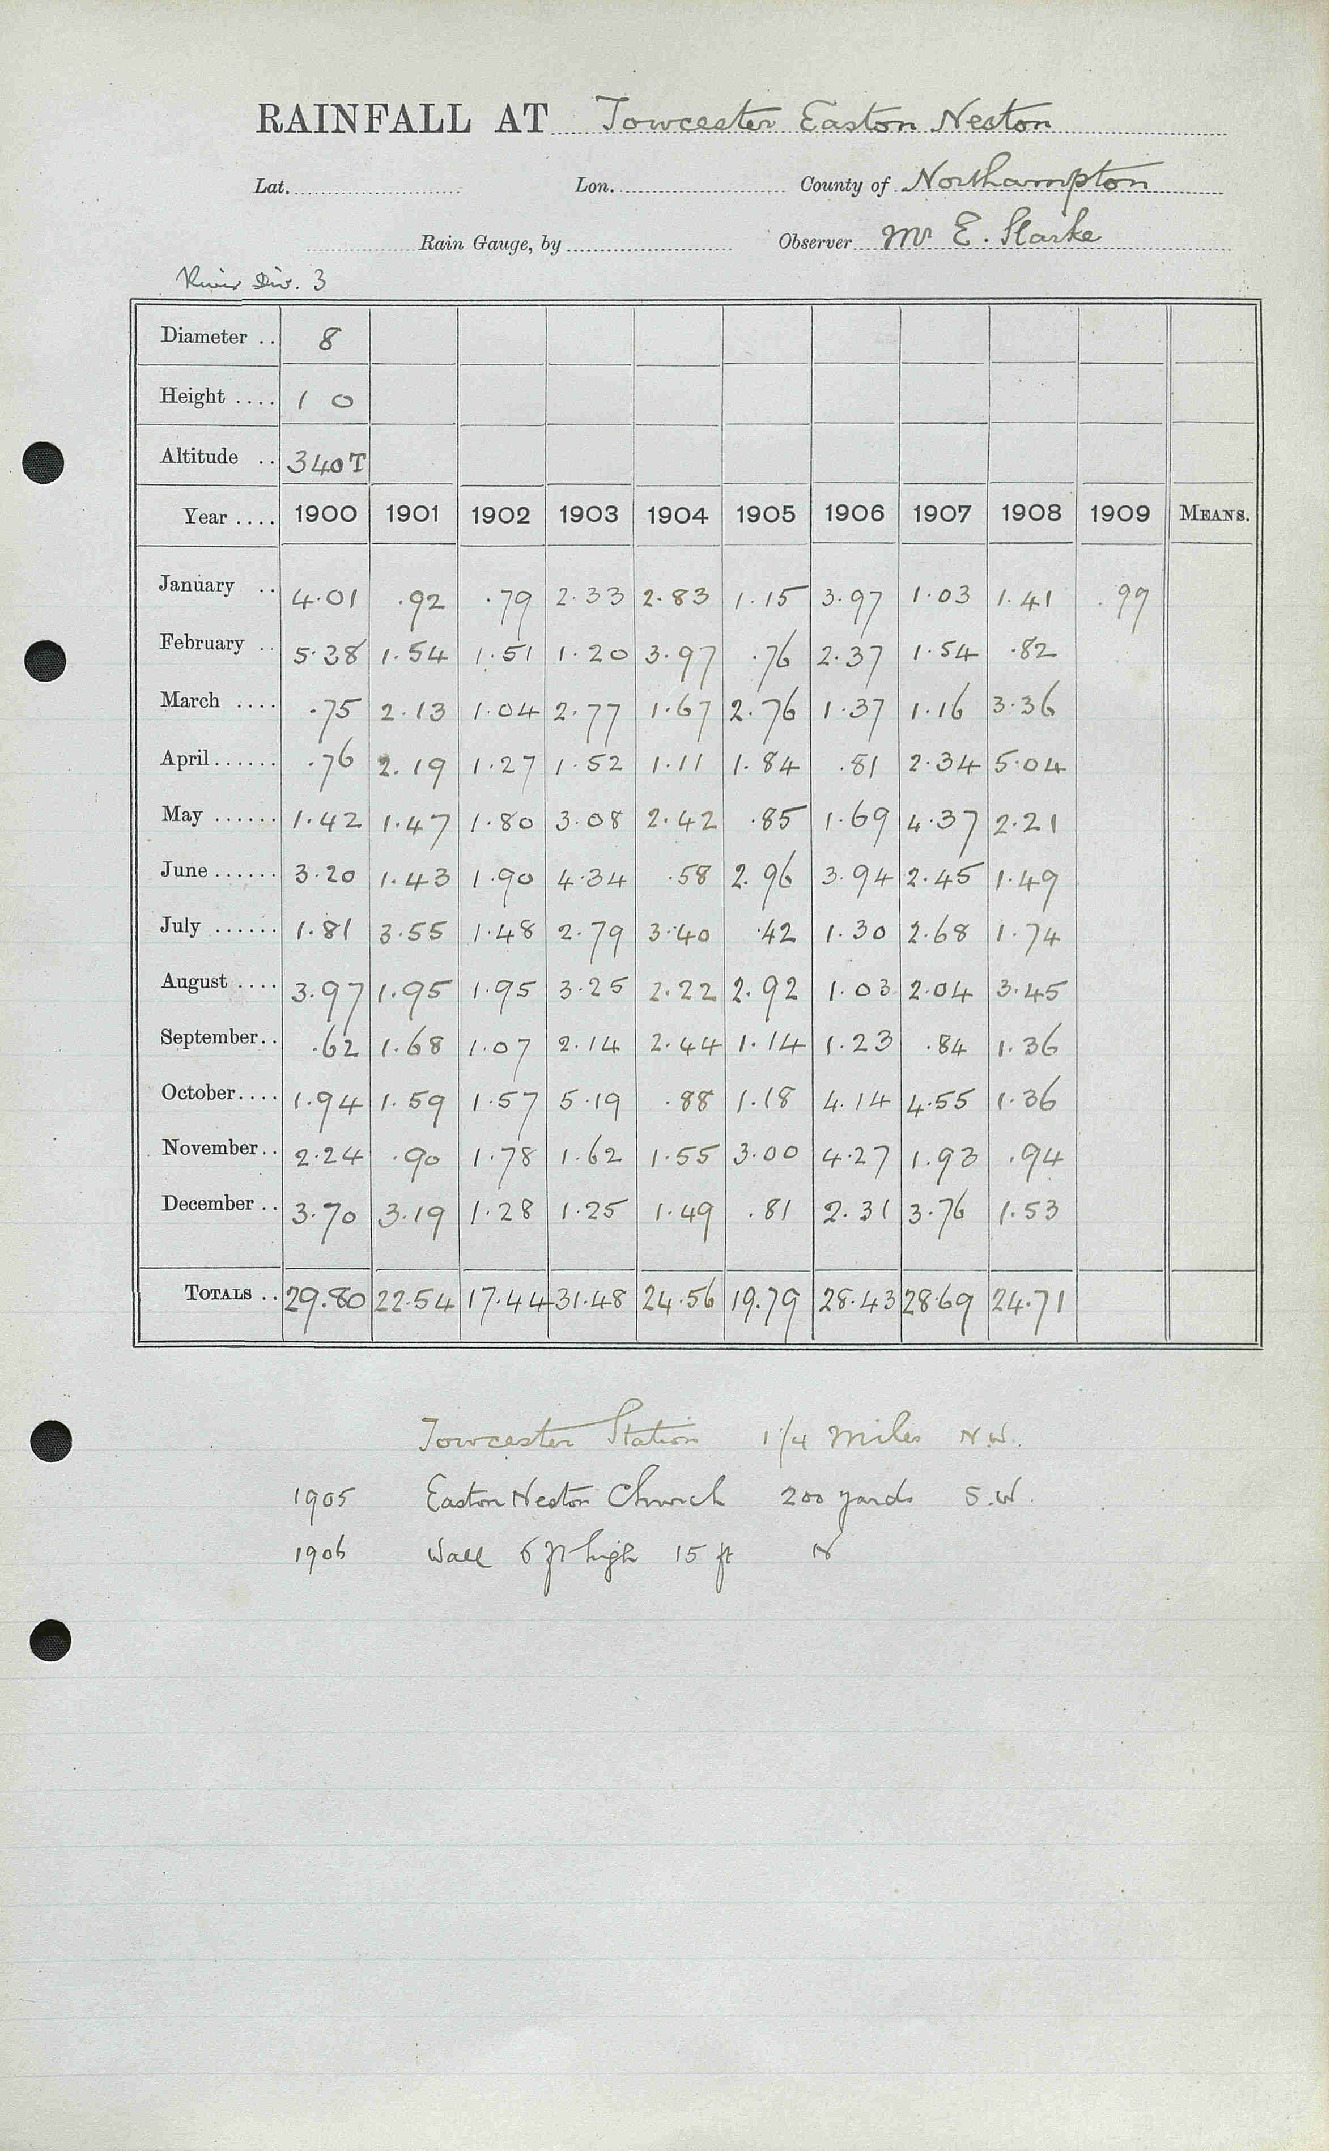 RAINFALL AT Towcester Easton Neston
Lat. Lon. County of Northampton
Rain Gauge, by Observer Mr E. Starke
River Div. 3
Diameter .. 8
Height .... 1 0
Altitude .. 340T
Year .... 1900 1901 1902 1903 1904 1905 1906 1907 1908 1909 MEANS.
January .. 4.01 .92 .79 2.33 2.83 1.15 3.97 1.03 1.41 .99
February .. 5.38 1.54 1.51 1.20 3.97 .76 2.37 1.54 .82
March .... .75 2.13 1.04 2.77 1.67 2.76 1.37 1.16 3.36
April...... .76 2.19 1.27 1.52 1.11 1.84 .81 2.34 5.04
May ...... 1.42 1.47 1.80 3.08 2.42 .85 1.69 4.37 2.21
June...... 3.20 1.43 1.90 4.34 .58 2.96 3.94 2.45 1.49
July ...... 1.81 3.55 1.48 2.79 3.40 .42 1.30 2.68 1.74
August .... 3.97 1.95 1.95 3.25 2.22 2.92 1.03 2.04 3.45
September.. .62 1.68 1.07 2.14 2.44 1.14 1.23 .84 1.36
October.... 1.94 1.59 1.57 5.19 .88 1.18 4.14 4.55 1.36
November.. 2.24 .90 1.78 1.62 1.55 3.00 4.27 1.93 .94
December .. 3.70 3.19 1.28 1.25 1.49 .81 2.31 3.76 1.53
TOTALS .. 29.80 22.54 17.44 31.48 24.56 19.79 28.43 28.69 24.71
Towcester Station 1 1/4 Miles N.W.
1905 Easton Neston Church 200 yards S.W.
1906 Wall 6 ft high 15 ft N